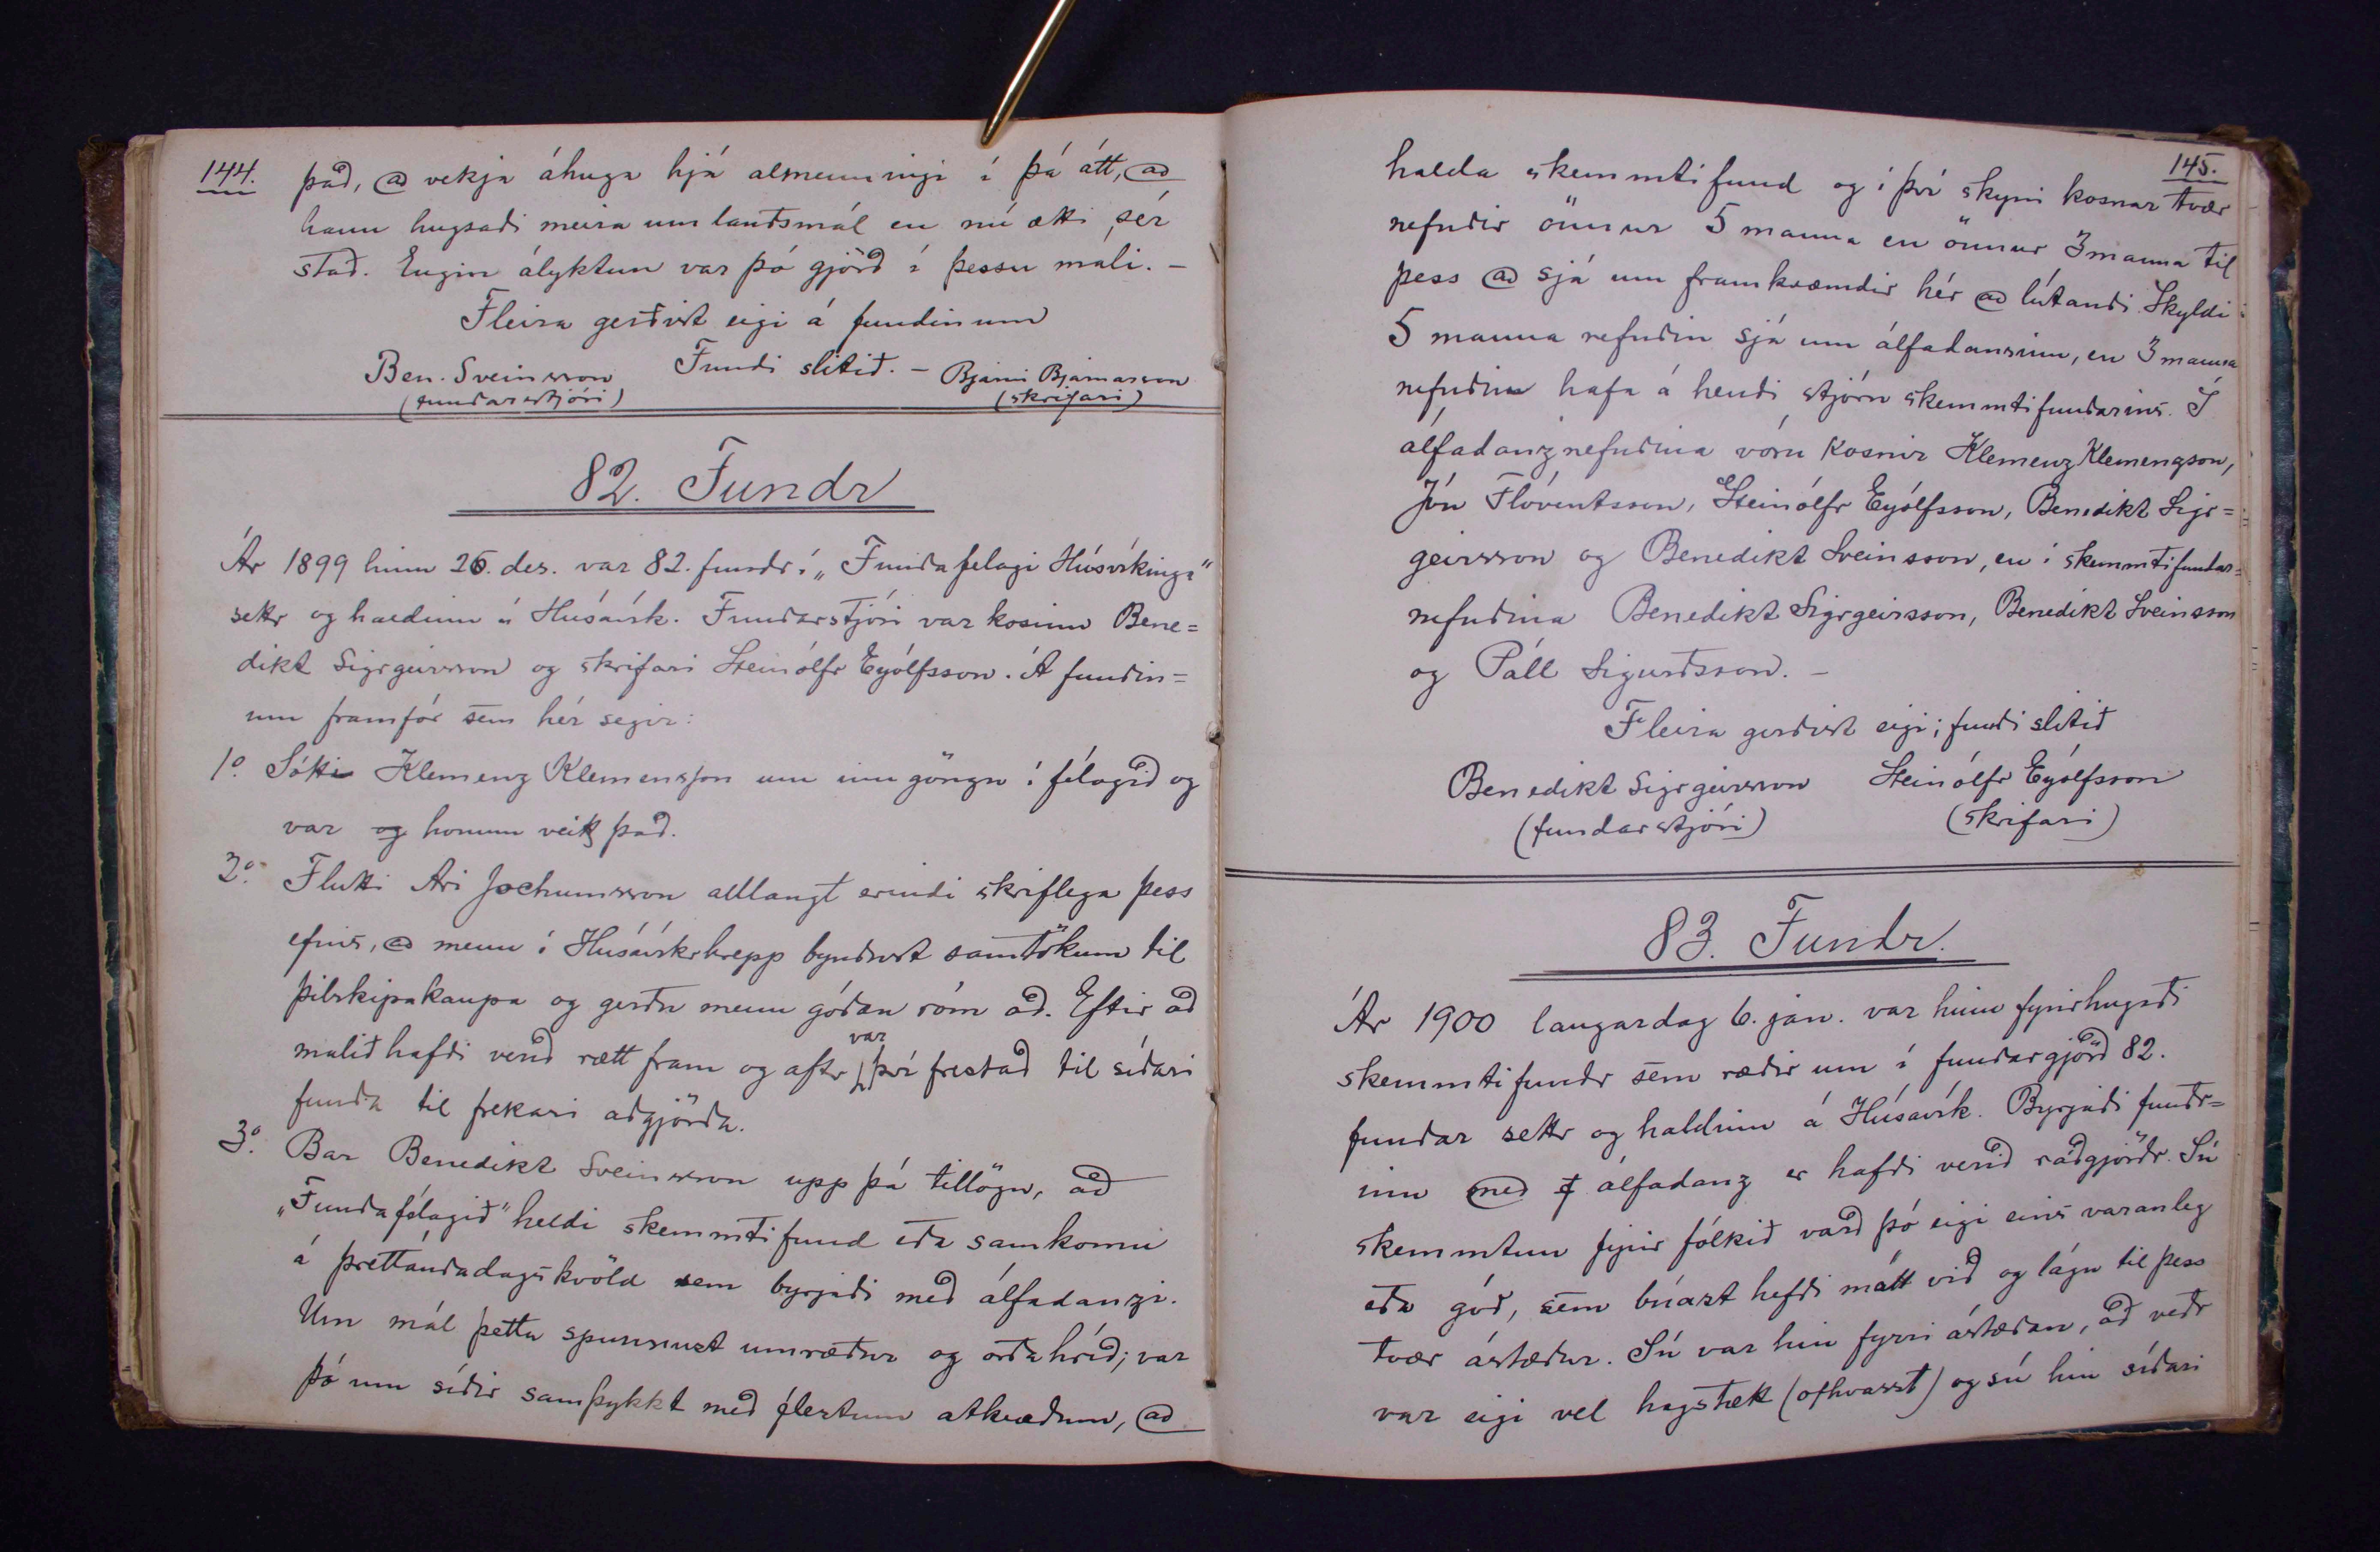 144.
það, að vekja áhuga hjá almenningi í þá átt, að
hann hugsaði meira um landsmál en nú ætti sér
stað. Engin ályktun var þó gjörð í þessu máli. –
Fleira gerðist eigi á fundinum
Fundi slitið. –
Ben. Sveinsson
(fundarstjóri)
Bjarni Bjarnarson
(skrifari)
82. Fundr
Ár 1899 hinn 26. des. var 82. fundr í „Fundafelagi Húsvíkinga“
settr og haldinn á Húsavík. Fundarstjóri var kosinn Bene=
dikt Sigrgeirsson og skrifari Steinólfr Eyólfsson. Á fundin=
um framfór sem hér segir:
1º. Sótti Klemenz Klemensson um inngöngu í félagið og
var og honum veitt það.
2º. Flutti Ari Jochumsson alllangt erindi skriflega þess
efnis, að menn í Húsavíkrhrepp byndust samtökum til
þilskipakaupa og gerðu menn góðan róm að. Eftir að
málið hafði verið rætt fram og aftr var því frestað til síðari
funda til frekari aðgjörða.
3º. Bar Benedikt Sveinsson upp þá tillögu, að
„Fundafélagið“ heldi skemmtifund eða samkomu
á þrettándadagskvöld sem byrjaði með álfadanzi.
Um mál þetta spunnust umræður og orðahríð; var
þó um síðir samþykkt með flestum atkvæðum, að
145.
halda skemmtifund og í því skyni kosnar tvær
nefndir önnur 5 manna en önnur 3 manna til
þess að sjá um framkvæmdir hér að lútandi. Skyldi
5 manna nefndin sjá um álfadansinn, en 3 manna
nefndin hafa á hendi stjórn skemmtifundarins. Í
álfadanznefndina vóru kosnir Klemenz Klemenzson,
Jón Flóventsson, Steinólfr Eyólfsson, Benedikt Sigr=
geirsson og Benedikt Sveinsson, en í skemmtifundar=
nefndina Benedikt Sigrgeirsson, Benedikt Sveinsson
og Páll Sigurðsson. –
Fleira gerðist eigi; fundi slitið
Benedikt Sigrgeirsson
(fundarstjóri)
Steinólfr Eyólfsson
(skrifari)
83. Fundr.
Ár 1900 laugardag 6. jan. var hinn fyrirhugaði
skemmtifundr sem ræðir um í fundargjörð 82.
fundar settr og haldinn á Húsavík. Byrjaði fundr=
inn með álfadanz er hafði verið ráðgjörðr. Sú
skemmtun fyrir fólkið varð þó eigi eins varanleg
eða góð, sem búazt hefði mátt við og lágu til þess
tvær ástæður. Sú var hin fyrri ástæðan, að veðr
var eigi vel hagstætt (ofhvasst) og sú hin síðari